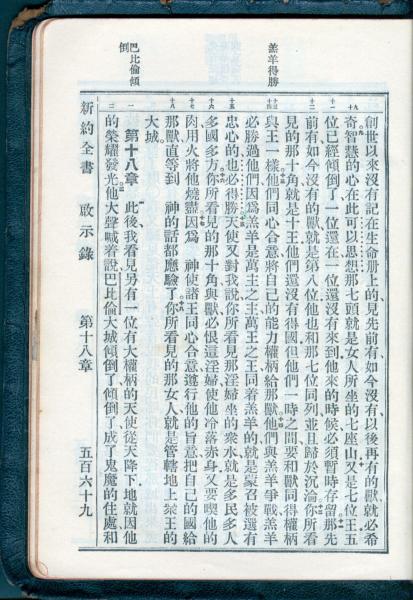 羔羊得勝
巴比倫傾
倒
創世以來沒有記在生命册上的、見先前有、如今沒有、以後再有的獸、就必希
九 奇智慧的心在此可以思想、那七頭就是女人所坐的七座山、又是七位王、五
十 位已經傾倒了、一位還在、一位還沒有來到、他來的時候、必須暫時存留、那先
十一 前有、如今沒有的獸、就是第八位、他也和那七位同列、並且歸於沉淪、你所看
十二 見的那十角、就是十王、他們還沒有得國、但他們一時之間、要和獸同得權柄
十三 十四 與王一樣、他們同心合意、將自己的能力權柄給那獸、他們與羔羊爭戰、羔羊
必勝過他們、因爲羔羊是萬主之主、萬王之王、同着羔羊的、就是蒙召被選有
十五 忠心的、也必得勝、天使又對我說、你所看見那淫婦坐的衆水、就是多民多人
十六 多國多方、你所看見的那十角與獸、必恨這淫婦、使他冷落赤身、又要喫他的
十七 肉、用火將他燒盡、因爲　神使諸王同心合意、遵行他的旨意、把自己的國給
十八 那獸、直等到　神的話都應驗了、你所看見的那女人、就是管轄地上衆王的
大城、
一 第十八章　此後我看見另有一位有大權柄的天使從天降下、地就因他
二 的榮耀發光、他大聲喊着說、巴比倫大城傾倒了、傾倒了、成了鬼魔的住處、和
新約全書　啟示錄　第十八章　五百六十九